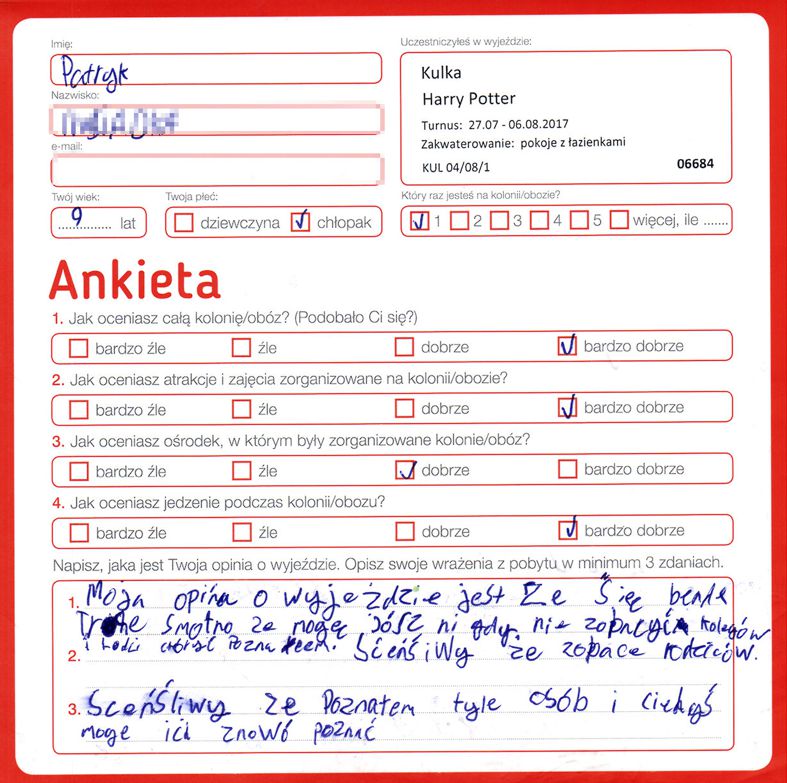 Imię:
Patryk
Nazwisko:
e-mail:
Twój wiek:
9 lat
Twoja płeć:
dziewczyna chłopak
Uczestniczyłeś w wyjeździe:
Kulka
Harry Potter
Turnus: 27.07 - 06.08.2017
Zakwaterowanie: pokoje z łazienkami
KUL 04/08/1 06684
Który raz jesteś na kolonii/obozie?
1 2 3 4 5 więcej, ile .......
Ankieta
1. Jak oceniasz całą kolonię/obóz? (Podobało Ci się?)
bardzo źle źle dobrze bardzo dobrze
2. Jak oceniasz atrakcje i zajęcia zorganizowane na kolonii/obozie?
bardzo źle źle dobrze bardzo dobrze
3. Jak oceniasz ośrodek, w którym były zorganizowane kolonie/obóz?
bardzo źle źle dobrze bardzo dobrze
4. Jak oceniasz jedzenie podczas kolonii/obozu?
bardzo źle źle dobrze bardzo dobrze
Napisz, jaka jest Twoja opinia o wyjeździe. Opisz swoje wrażenia z pobytu w minimum 3 zdaniach.
1. Moja opina o wyjeździe jest że
smotno że mogę nigdy nie kolegów
2. i Sceńśiwy że zobace rodziców.
3. Sceńśliwy że Poznałem tyle osób i
moge ich znowó poznać